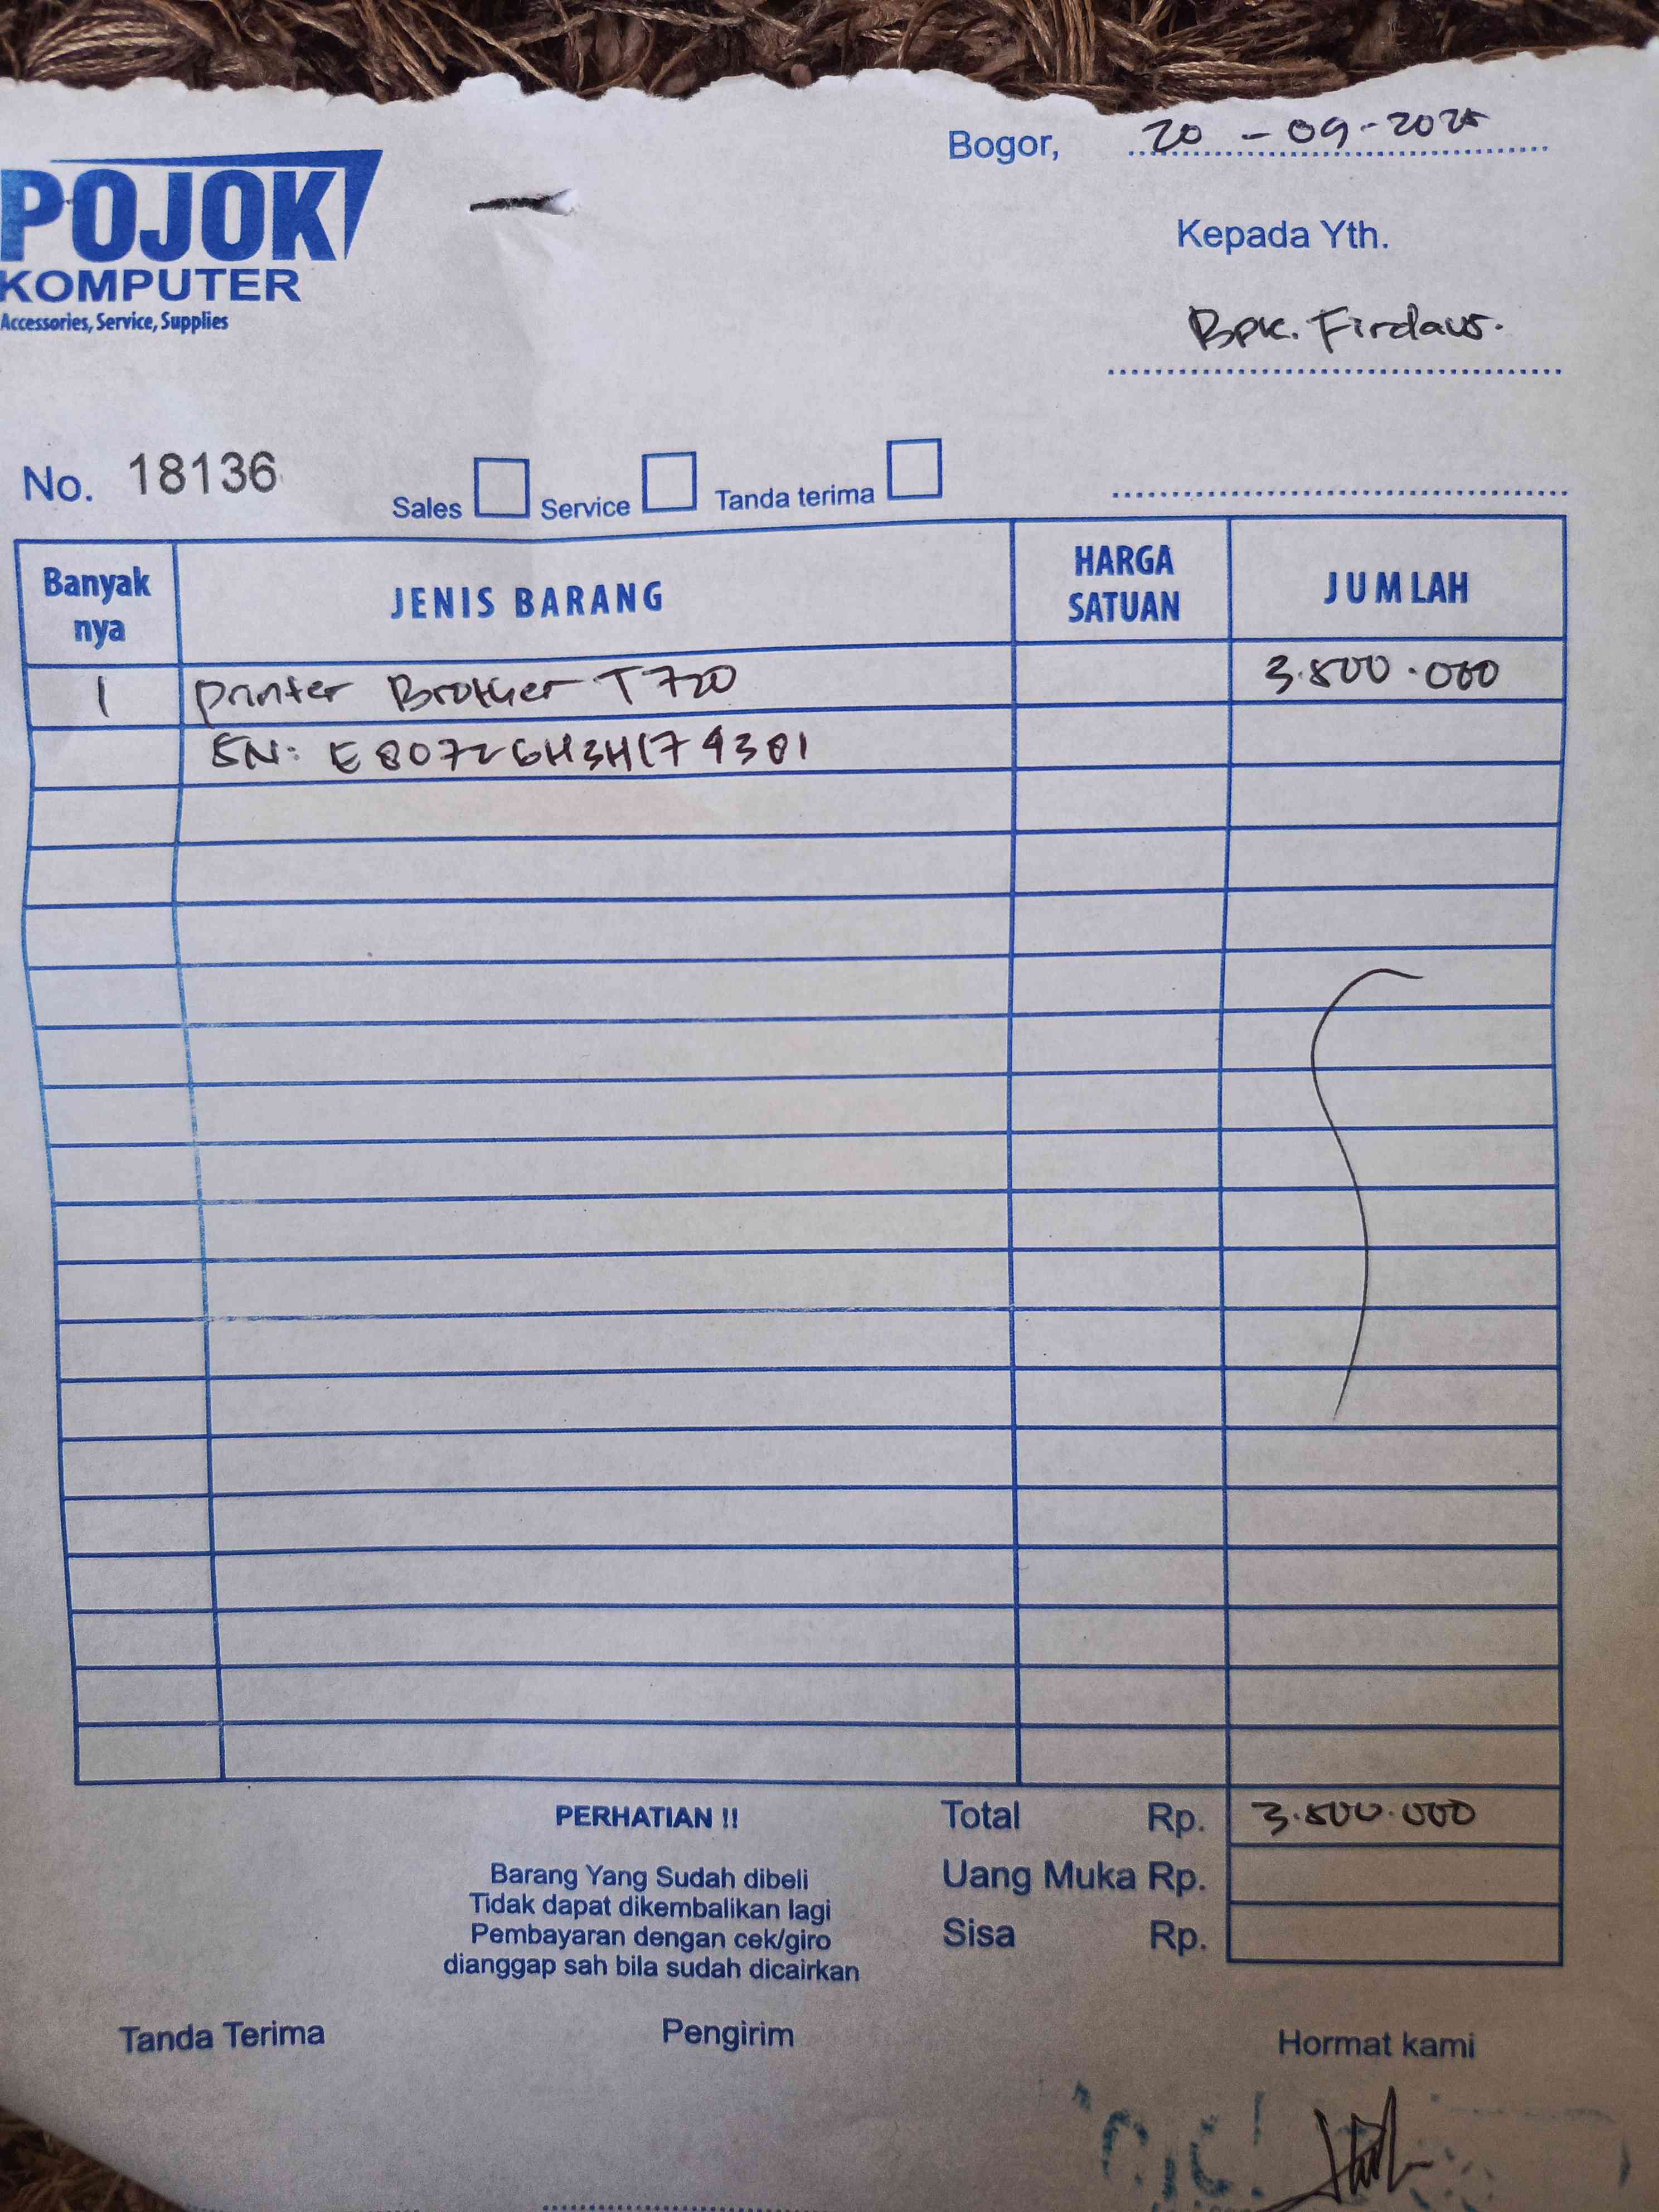 Bogor, 20 - 09 - 2025
POJOK
KOMPUTER
Accessories, Service, Supplies
Kepada Yth.
Bpk. Firdaus.
No. 18136
Sales Service Tanda terima
Banyak nya JENIS BARANG HARGA SATUAN JUMLAH
1 printer Brother T720 3.800.000
SN: E80726H3H174381
PERHATIAN !!
Barang Yang Sudah dibeli
Tidak dapat dikembalikan lagi
Pembayaran dengan cek/giro
dianggap sah bila sudah dicairkan
Total Rp. 3.800.000
Uang Muka Rp.
Sisa Rp.
Tanda Terima Pengirim Hormat kami